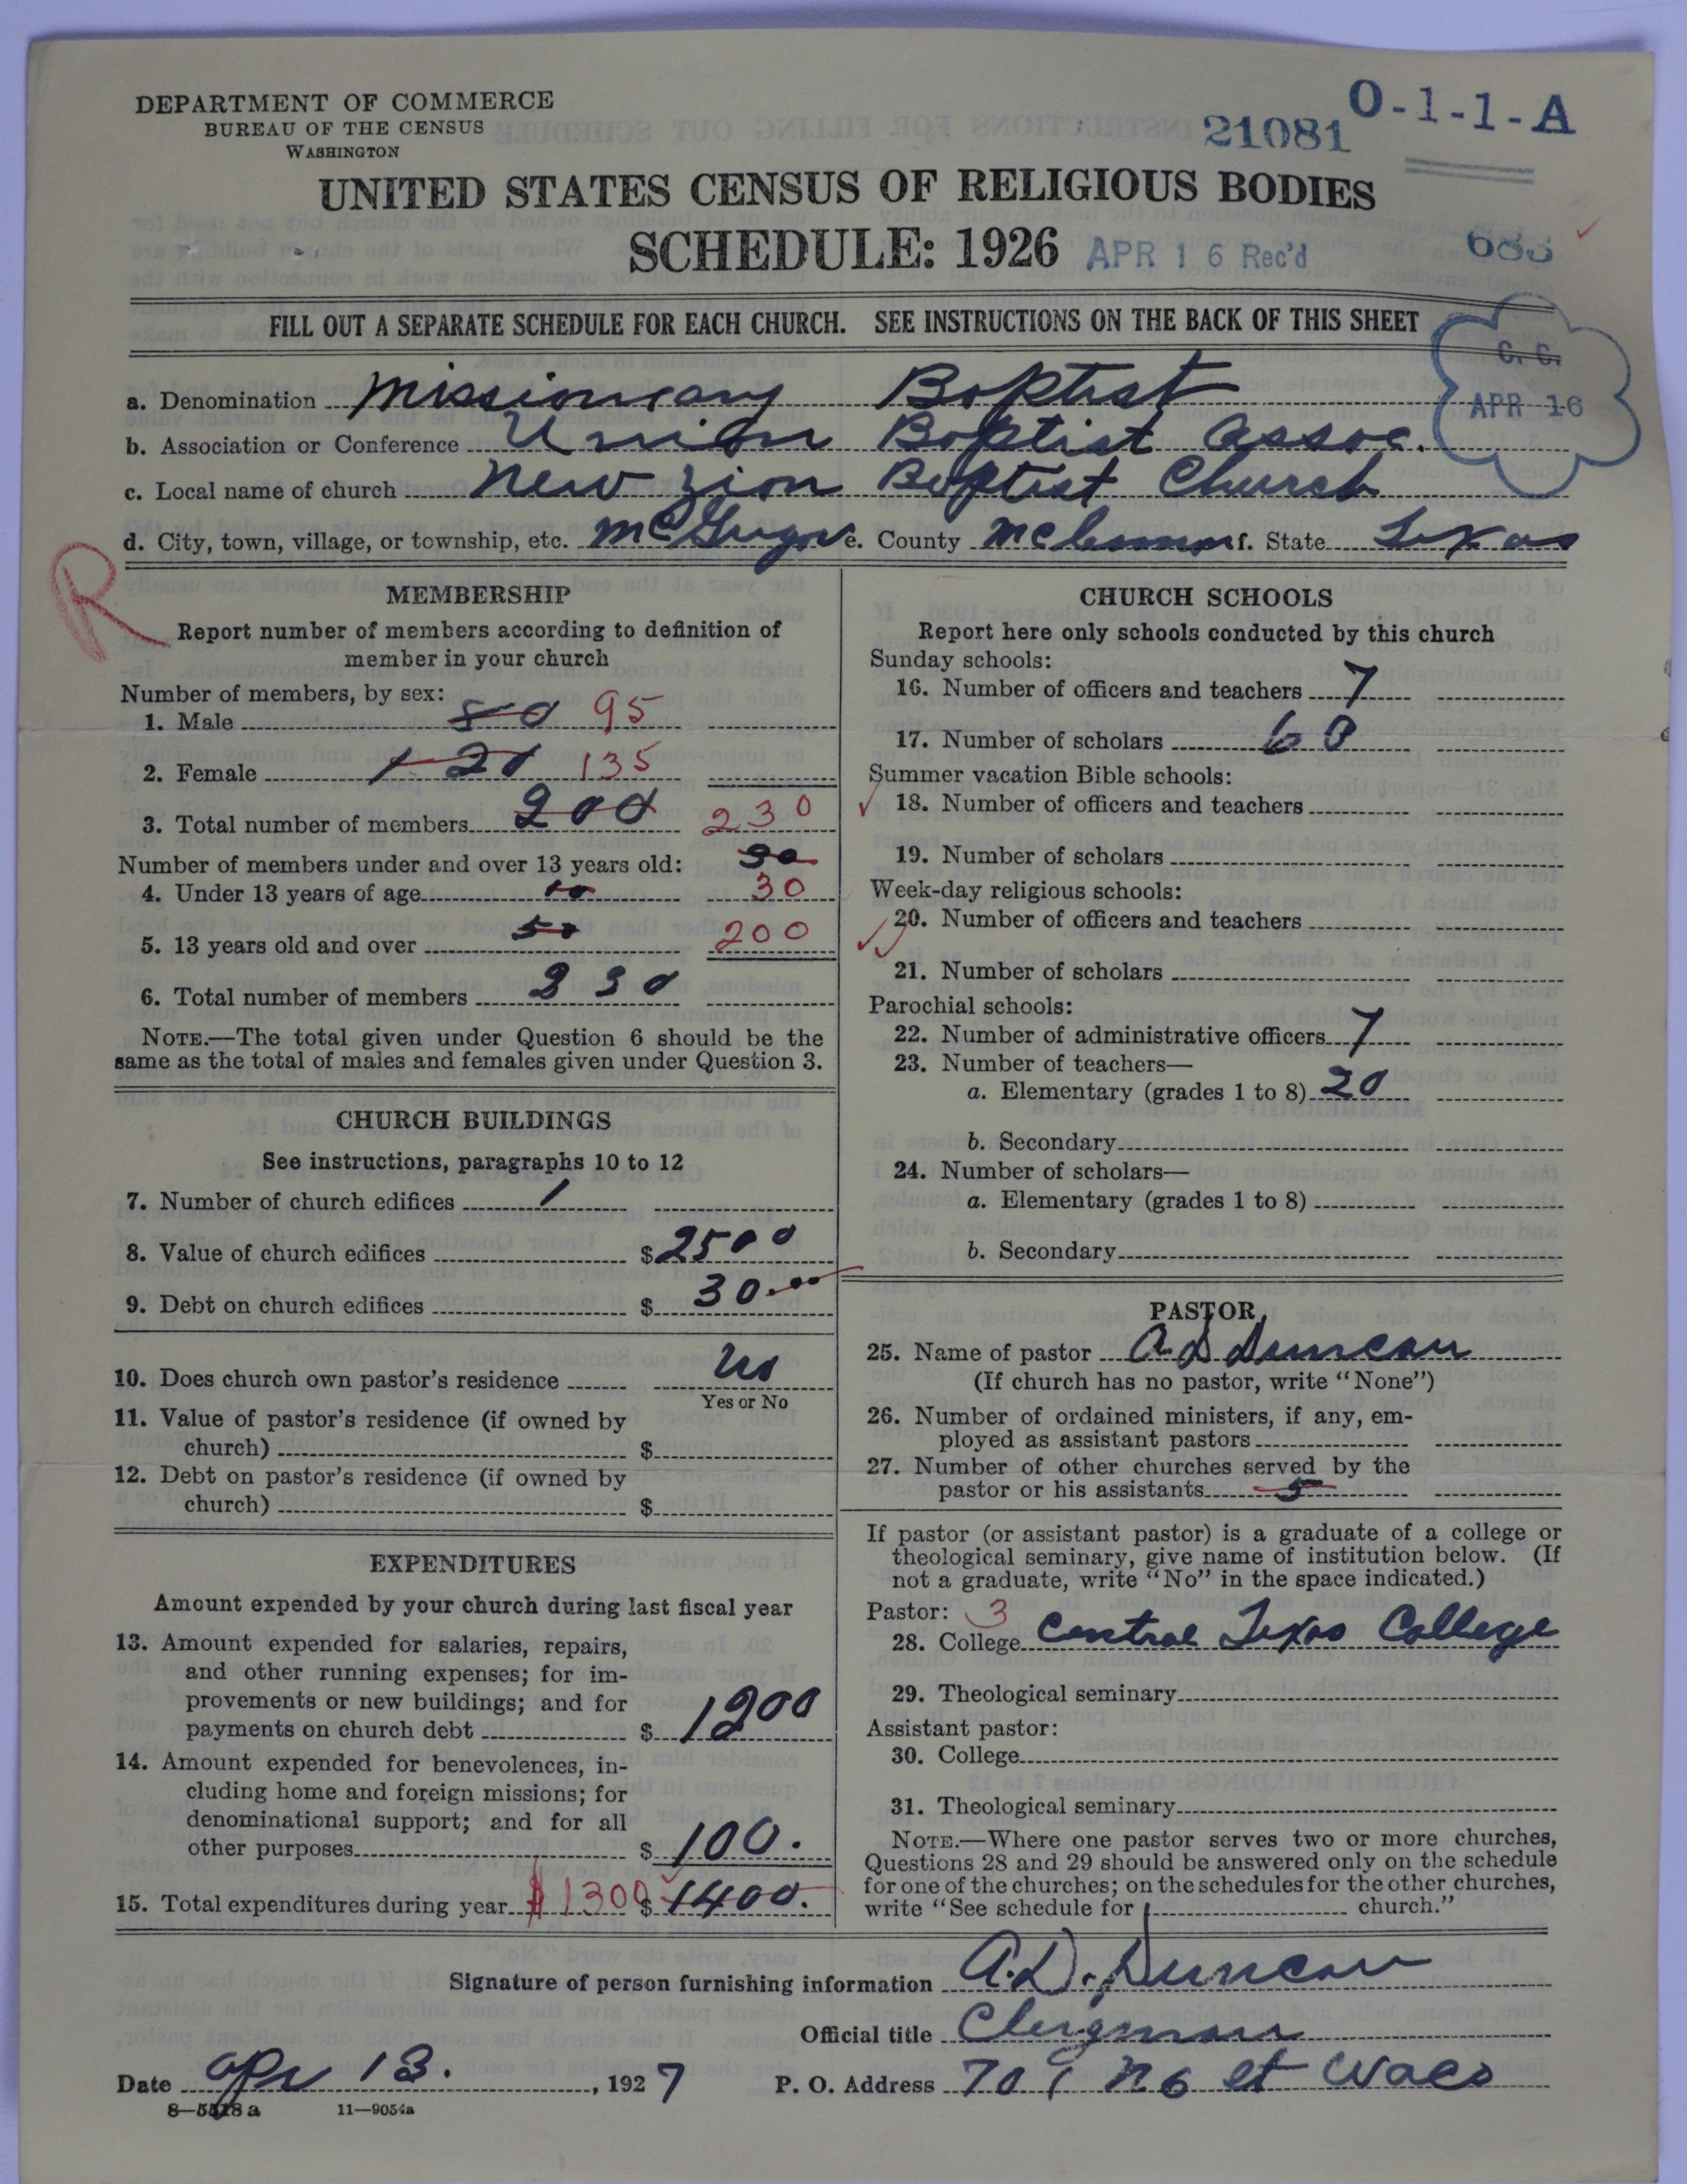 DEPARTMENT OF COMMERCE
BUREAU OF THE CENSUS
WASHINGTON
21081
O-1-1-A
UNITED STATES CENSUS OF RELIGIOUS BODIES
SCHEDULE: 1926
APR 16 Rec'd
683
FILL OUT A SEPARATE SCHEDULE FOR EACH CHURCH. SEE INSTRUCTIONS ON THE BACK OF THIS SHEET
C. C.
APR 16
a. Denomination Missionary Baptist
b. Association or Conference Union Baptist Assoc.
c. Local name of church New Zion Baptist Church
d. City, town, village, or township, etc. McGregor e. County McLennan f. State Texas
R
MEMBERSHIP
Report number of members according to definition of
member in your church
Number of members, by sex:
1. Male 80 95
2. Female 120 135
3. Total number of members 200 230
Number of members under and over 13 years old: 30
4. Under 13 years of age 10 30
5. 13 years old and over 50 200
6. Total number of members 230
NOTE.—The total given under Question 6 should be the
same as the total of males and females given under Question 3.
CHURCH BUILDINGS
See instructions, paragraphs 10 to 12
7. Number of church edifices 1
8. Value of church edifices $2500
9. Debt on church edifices $ 30.00
10. Does church own pastor's residence No
Yes or No
11. Value of pastor's residence (if owned by
church) $
12. Debt on pastor's residence (if owned by
church) $
EXPENDITURES
Amount expended by your church during last fiscal year
13. Amount expended for salaries, repairs,
and other running expenses; for im-
provements or new buildings; and for
payments on church debt $ 1200
14. Amount expended for benevolences, in-
cluding home and foreign missions; for
denominational support; and for all
other purposes $ 100.
15. Total expenditures during year $1300 $ 1400.
CHURCH SCHOOLS
Report here only schools conducted by this church
Sunday schools:
16. Number of officers and teachers 7
17. Number of scholars 60
Summer vacation Bible schools:
18. Number of officers and teachers
19. Number of scholars
Week-day religious schools:
20. Number of officers and teachers
21. Number of scholars
Parochial schools:
22. Number of administrative officers 7
23. Number of teachers—
a. Elementary (grades 1 to 8) 20
b. Secondary
24. Number of scholars—
a. Elementary (grades 1 to 8)
b. Secondary
PASTOR
25. Name of pastor A D Duncan
(If church has no pastor, write "None")
26. Number of ordained ministers, if any, em-
ployed as assistant pastors
27. Number of other churches served by the
pastor or his assistants 5
If pastor (or assistant pastor) is a graduate of a college or
theological seminary, give name of institution below. (If
not a graduate, write "No" in the space indicated.)
Pastor: 3
28. College Central Texas College
29. Theological seminary
Assistant pastor:
30. College
31. Theological seminary
NOTE.—Where one pastor serves two or more churches,
Questions 28 and 29 should be answered only on the schedule
for one of the churches; on the schedules for the other churches,
write "See schedule for church."
Signature of person furnishing information A.D. Duncan
Official title Clergman
Date Apr 13. , 1927 P. O. Address 701 N 6 st Waco
8—5518a 11—9054a